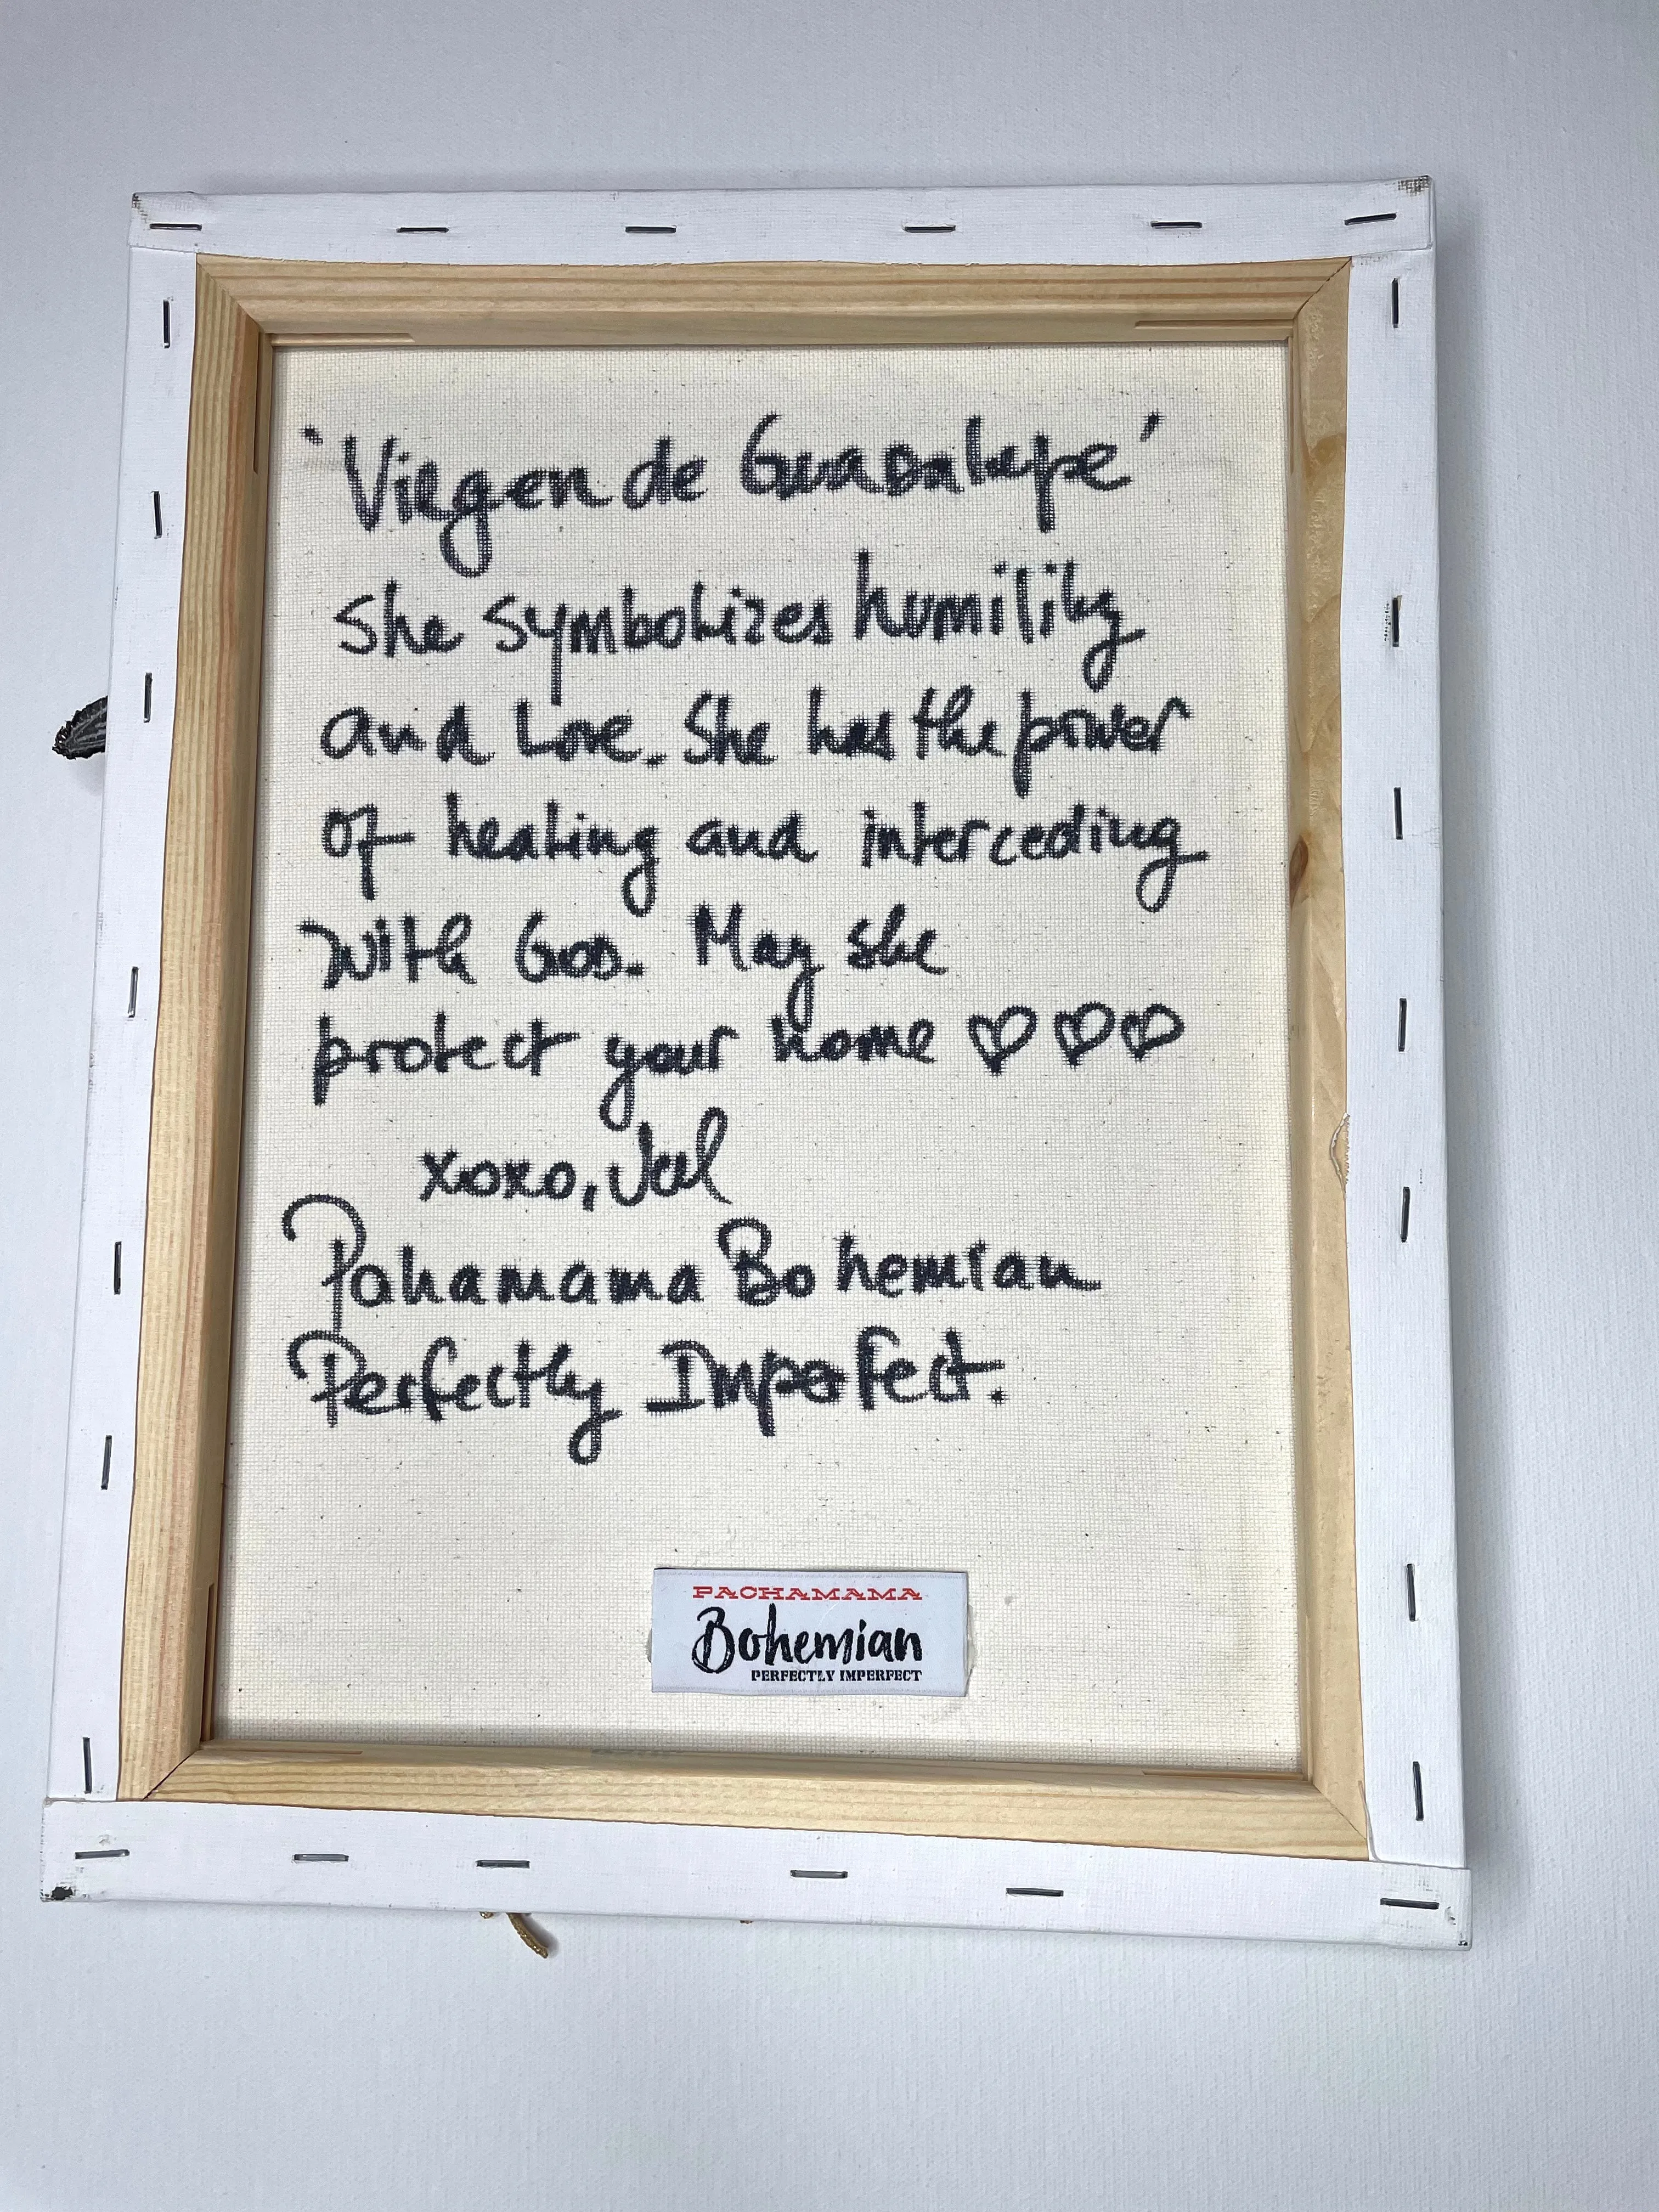 'Virgen de Guadalupe'
She symbolizes humility
and Love. She has the power
of healing and interceding
with God. May she
protect your home ♡♡♡
xoxo, Val
Pahamama Bohemian
Perfectly Imperfect.
PACHAMAMA
Bohemian
PERFECTLY IMPERFECT